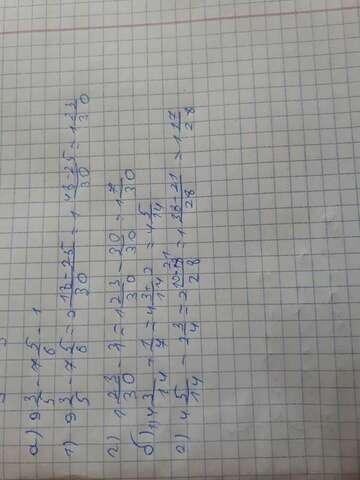 а) 9 3/5 - 7 5/6 - 1
1) 9 3/5 - 7 5/6 = 2 18-25/30 = 1 48-25/30 = 1 23/30
2) 1 23/30 - 1 = 1 23/30 - 30/30 = 1 7/30
б) 1) 4 3/14 - 1/7 = 4 3-2/14 = 4 5/14
2) 4 5/14 - 2 3/4 = 2 10-21/28 = 1 38-21/28 = 1 17/28